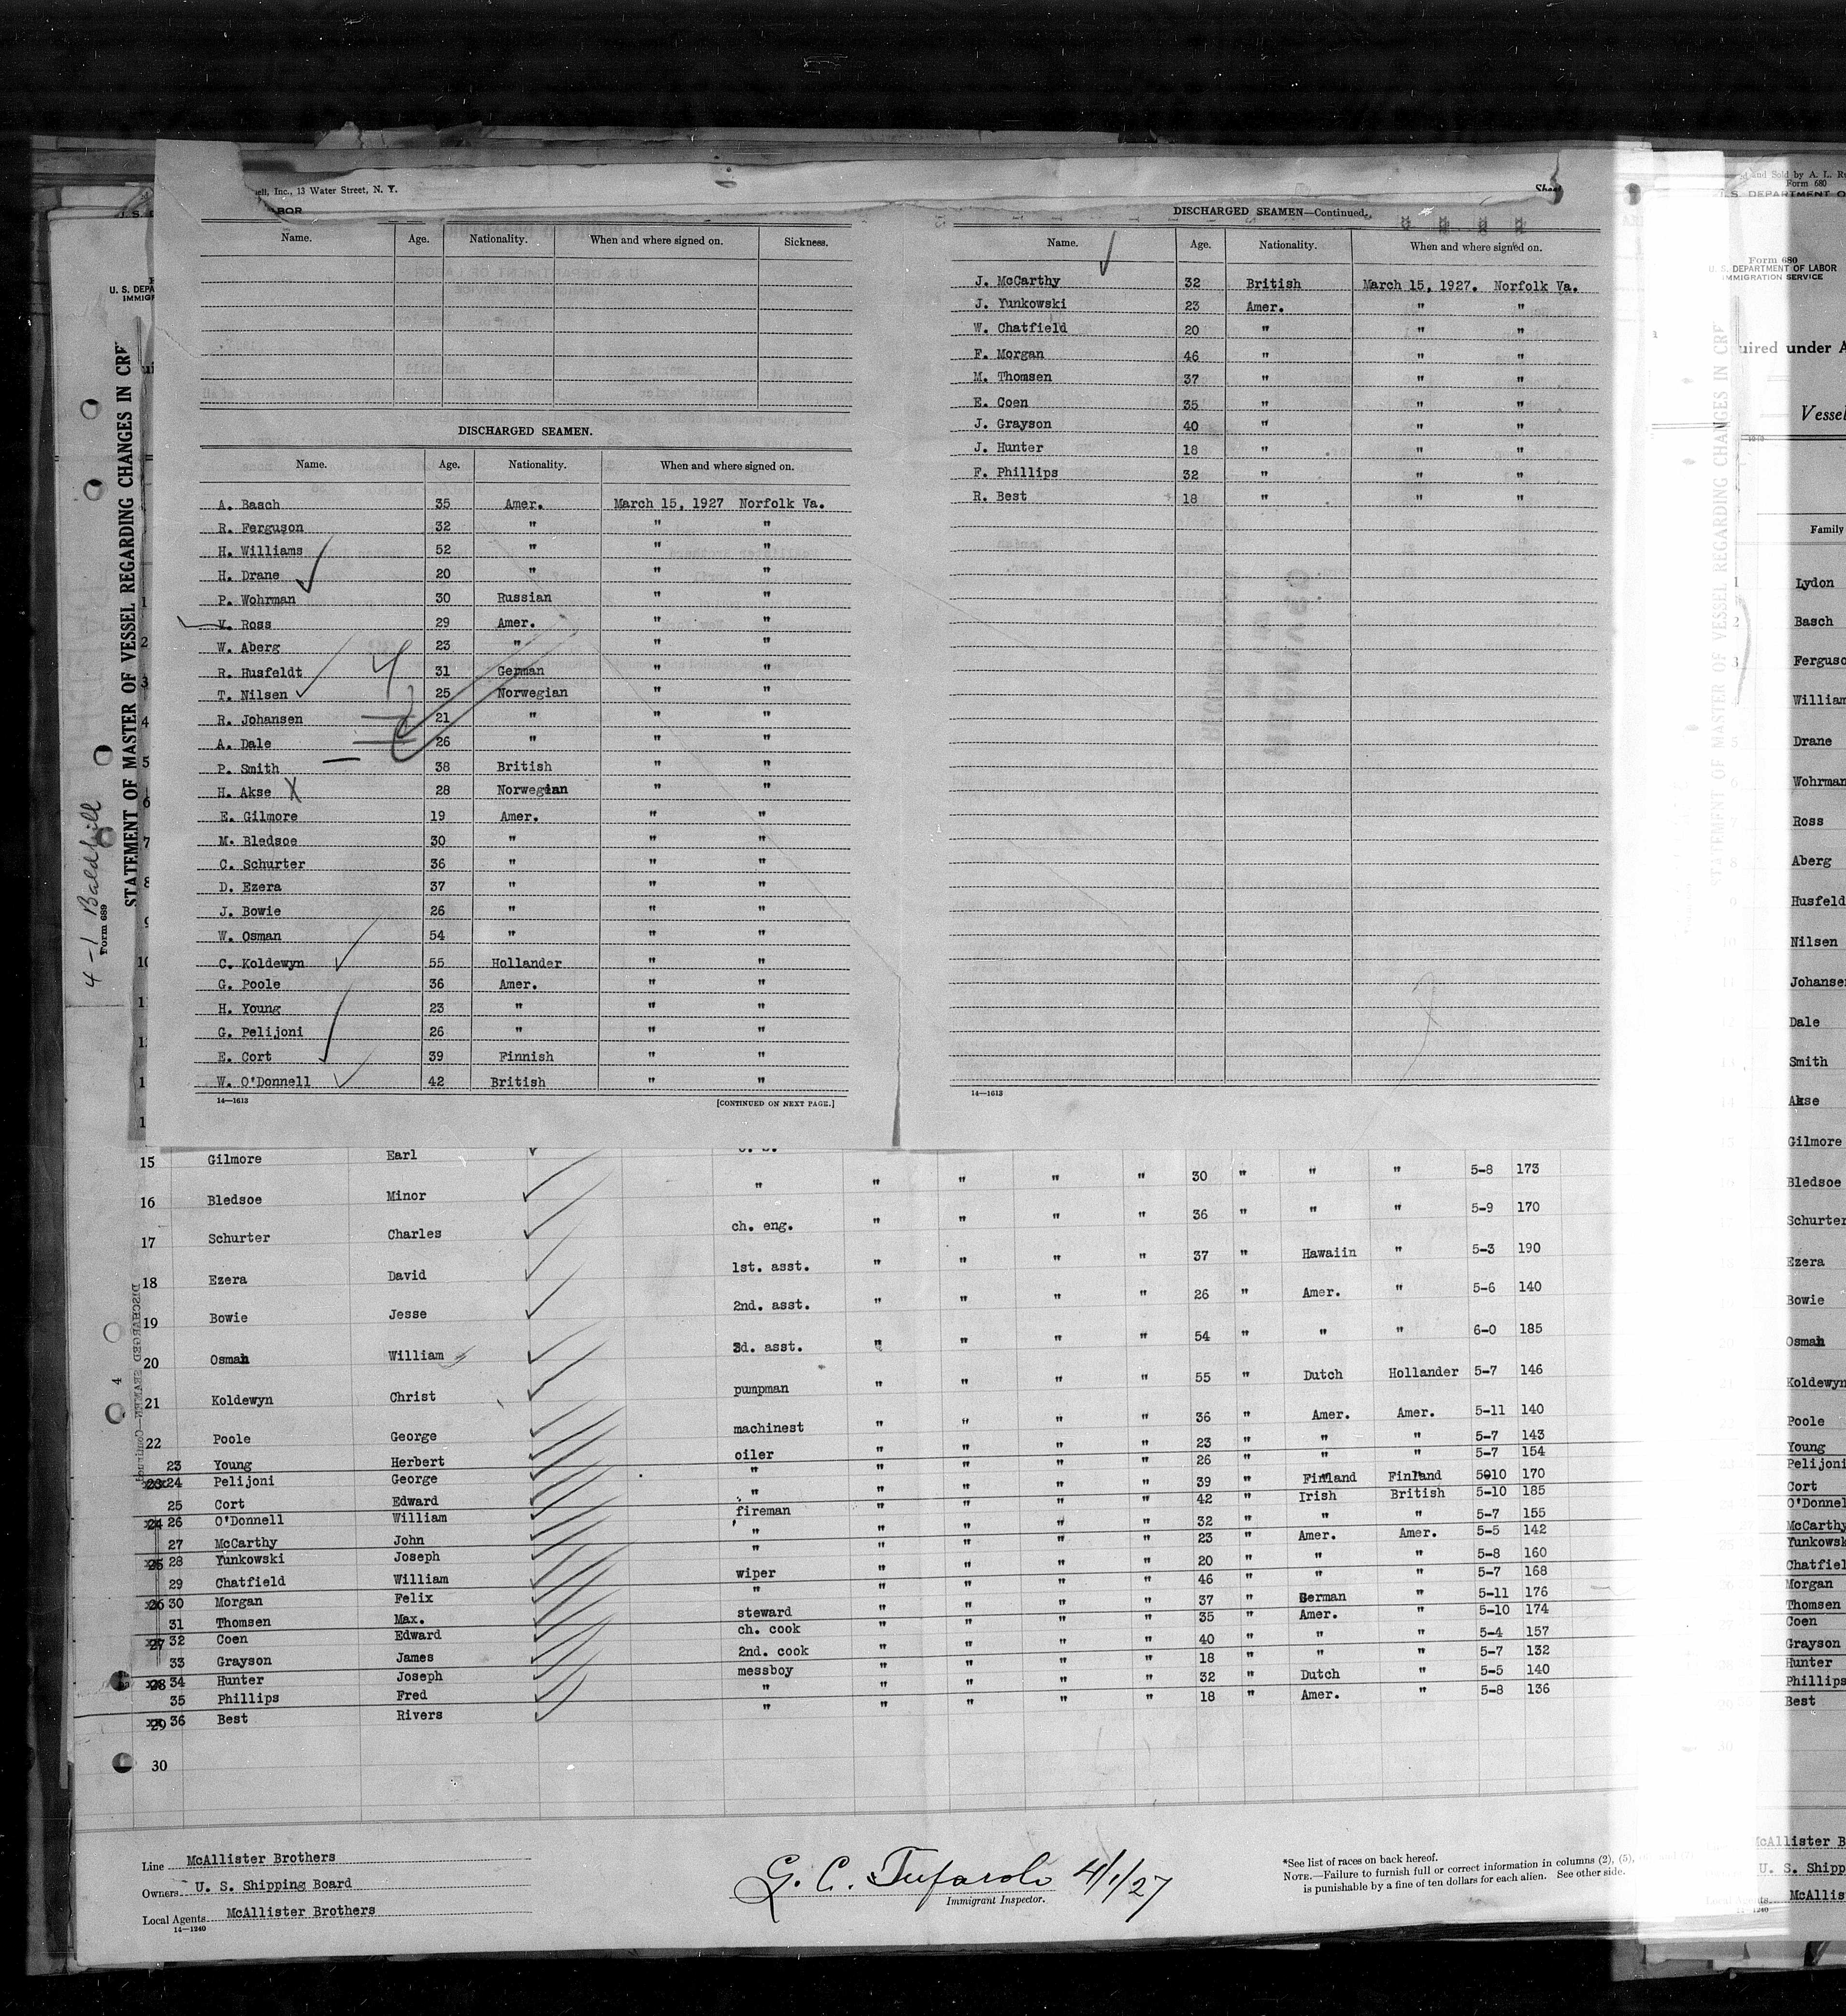 ell, Inc., 13 Water Street, N. Y.
Sheet
ABOR
Name. Age. Nationality. When and where signed on. Sickness.
DISCHARGED SEAMEN.
Name. Age. Nationality. When and where signed on.
A. Basch 35 Amer. March 15, 1927 Norfolk Va.
R. Ferguson 32 " " "
H. Williams 52 " " "
H. Drane 20 " " "
P. Wohrman 30 Russian " "
V. Ross 29 Amer. " "
W. Aberg 23 " " "
R. Husfeldt 31 German " "
T. Nilsen 25 Norwegian " "
R. Johansen 21 " " "
A. Dale 26 " " "
P. Smith 38 British " "
H. Akse X 28 Norwegian " "
E. Gilmore 19 Amer. " "
M. Bledsoe 30 " " "
C. Schurter 36 " " "
D. Ezera 37 " " "
J. Bowie 26 " " "
W. Osman 54 " " "
C. Koldewyn 55 Hollander " "
G. Poole 36 Amer. " "
H. Young 23 " " "
G. Pelijoni 26 " " "
E. Cort 39 Finnish " "
W. O'Donnell 42 British " "
14—1613 [CONTINUED ON NEXT PAGE.]
DISCHARGED SEAMEN—Continued.
Name. Age. Nationality. When and where signed on.
J. McCarthy 32 British March 15, 1927. Norfolk Va.
J. Yunkowski 23 Amer. " "
W. Chatfield 20 " " "
F. Morgan 46 " " "
M. Thomsen 37 " " "
E. Coen 35 " " "
J. Grayson 40 " " "
J. Hunter 18 " " "
F. Phillips 32 " " "
R. Best 18 " " "
14—1613
U. S. DEPA
IMMIGR
STATEMENT OF MASTER OF VESSEL REGARDING CHANGES IN CRE
Form 689
4-1 Baldhill
1
2
3
4
5
6
7
8
9
10
15 Gilmore Earl
16 Bledsoe Minor " " " " " 30 " " " 5-8 173
17 Schurter Charles ch. eng. " " " " 36 " " " 5-9 170
18 Ezera David 1st. asst. " " " " 37 " Hawaiin " 5-3 190
19 Bowie Jesse 2nd. asst. " " " " 26 " Amer. " 5-6 140
20 Osman William 3d. asst. " " " " 54 " " " 6-0 185
21 Koldewyn Christ pumpman " " " " 55 " Dutch Hollander 5-7 146
22 Poole George machinest " " " " 36 " Amer. Amer. 5-11 140
23 Young Herbert oiler " " " " 23 " " " 5-7 143
24 Pelijoni George " " " " " 26 " " " 5-7 154
25 Cort Edward " " " " " 39 " Finland Finland 5-10 170
26 O'Donnell William fireman " " " " 42 " Irish British 5-10 185
27 McCarthy John " " " " " 32 " " " 5-7 155
28 Yunkowski Joseph " " " " " 23 " Amer. Amer. 5-5 142
29 Chatfield William wiper " " " " 20 " " " 5-8 160
30 Morgan Felix " " " " " 46 " " " 5-7 168
31 Thomsen Max. steward " " " " 37 " German " 5-11 176
32 Coen Edward ch. cook " " " " 35 " Amer. " 5-10 174
33 Grayson James 2nd. cook " " " " 40 " " " 5-4 157
34 Hunter Joseph messboy " " " " 18 " " " 5-7 132
35 Phillips Fred " " " " " 32 " Dutch " 5-5 140
36 Best Rivers " " " " " 18 " Amer. " 5-8 136
30
Line McAllister Brothers
Owners U. S. Shipping Board
Local Agents McAllister Brothers
14—1240
G. C. Tufarolo 4/1/27
Immigrant Inspector.
*See list of races on back hereof.
NOTE.—Failure to furnish full or correct information in columns (2), (5),
is punishable by a fine of ten dollars for each alien. See other side.
and Sold by A. L. Ru
Form 680
U. S. DEPARTMENT O
Form 680
U. S. DEPARTMENT OF LABOR
IMMIGRATION SERVICE
uired under A
Vessel
Family
Lydon
Basch
Ferguso
William
Drane
Wohrman
Ross
Aberg
Husfeld
Nilsen
Johansen
Dale
Smith
Akse
Gilmore
Bledsoe
Schurter
Ezera
Bowie
Osman
Koldewyn
Poole
Young
Pelijoni
Cort
O'Donnel
McCarthy
Yunkowsk
Chatfiel
Morgan
Thomsen
Coen
Grayson
Hunter
Phillips
Best
McAllister B
U. S. Shipp
McAllis